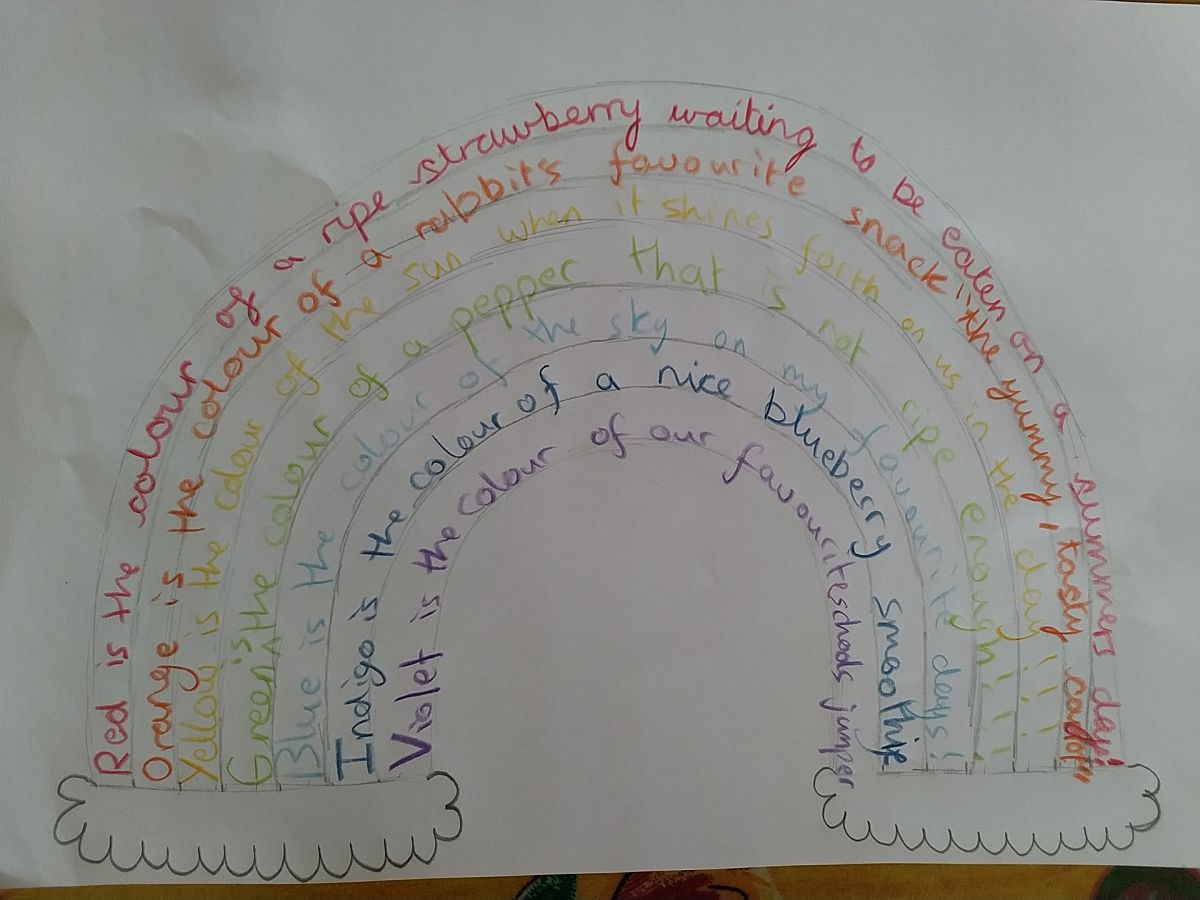 Red is the colour of a ripe strawberry waiting to be eaten on a summers day!
Orange is the colour of a rabbit's favourite snack "the yummy, tasty carrot"
Yellow is the colour of the sun when it shines forth on us in the day!!!!
Green is the colour of a pepper that is not ripe enough!!!!
Blue is the colour of the sky on my favourite days!!
Indigo is the colour of a nice blueberry smoothije
Violet is the colour of our favourite schools jumper